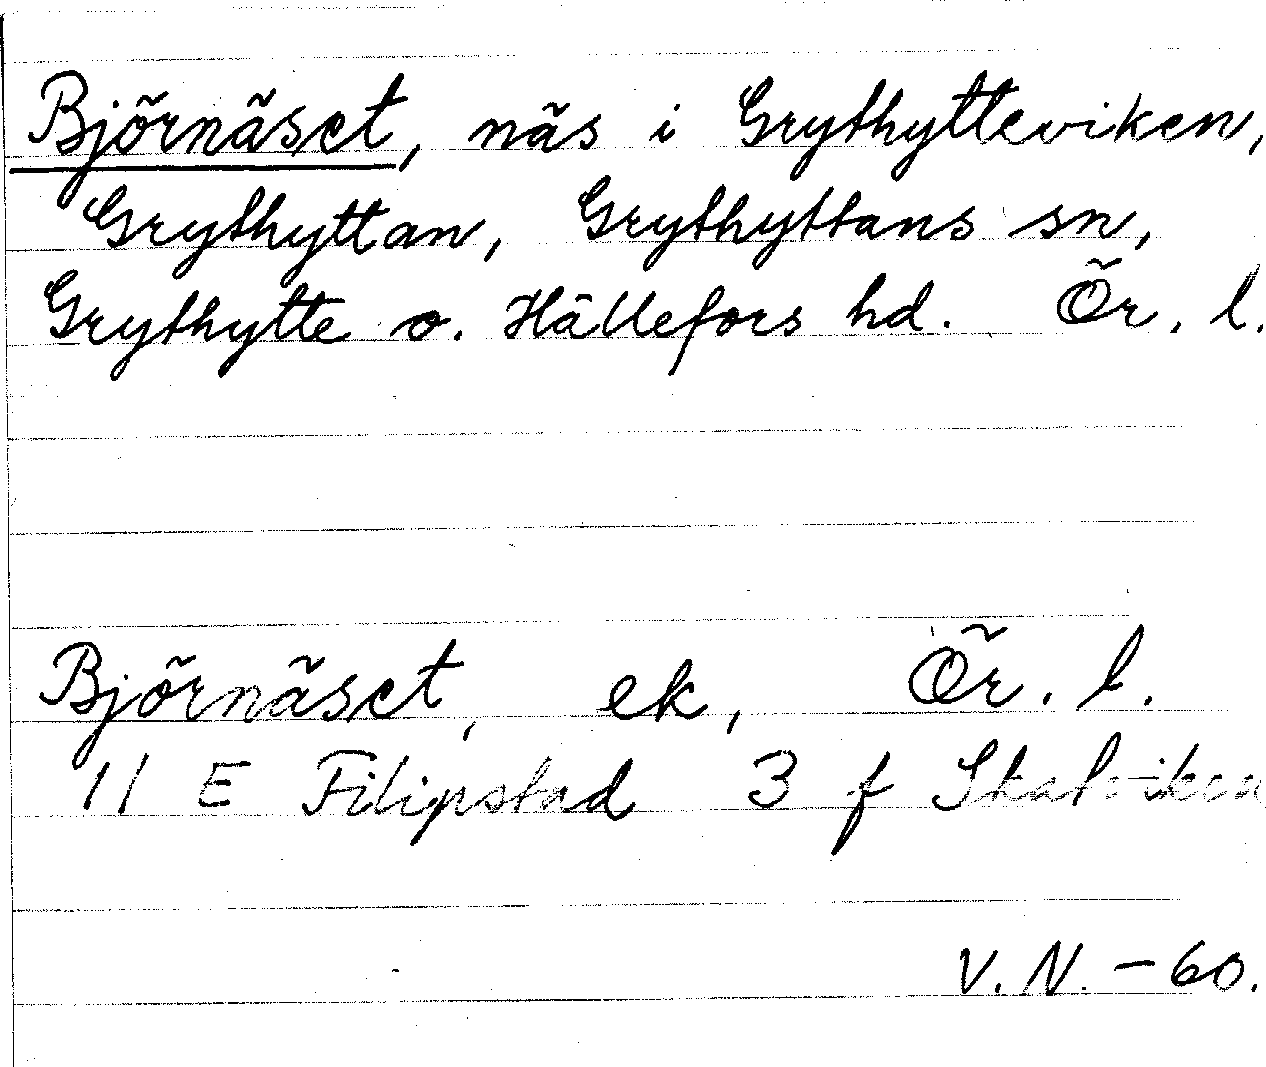 Björnäset, näs i Grythytteviken,
Grythyttan, Grythyttans sn,
Grythytte o. Hällefors hd. Ör. l.
Björnäset, ek, Ör. l.
11 E Filipstad 3 f
V. N. - 60.